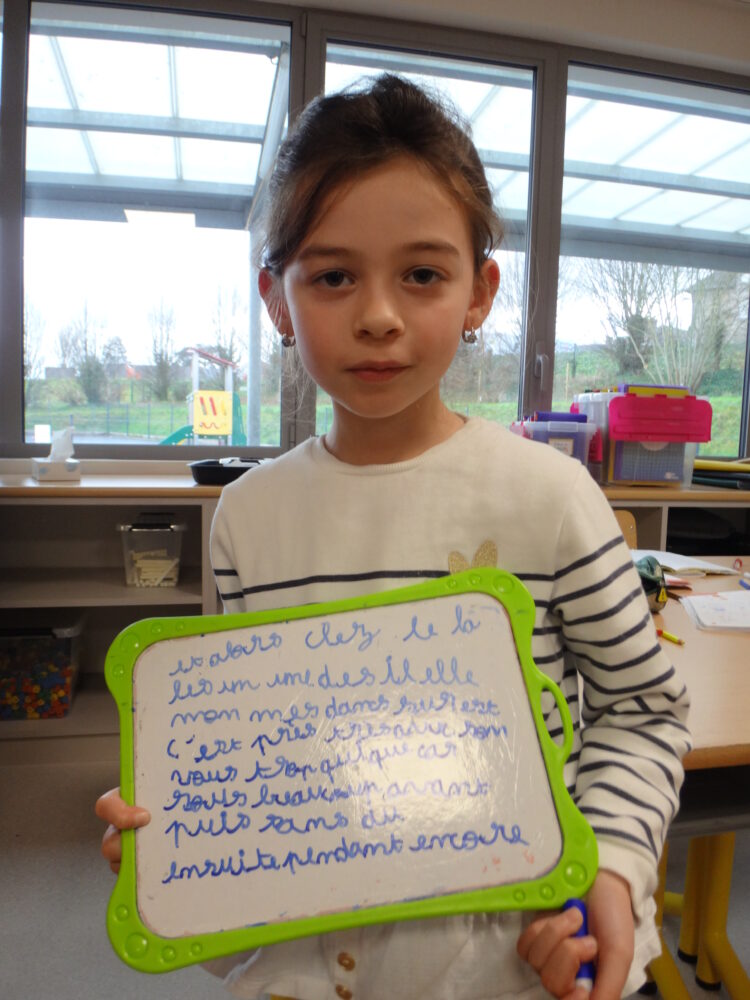 et alors chez le la
les un une des il elle
mon mes dans sur est
c'est près très pour son
vous trop quelque car
sous beaucoup avant
puis sans du
ensuite pendant encore